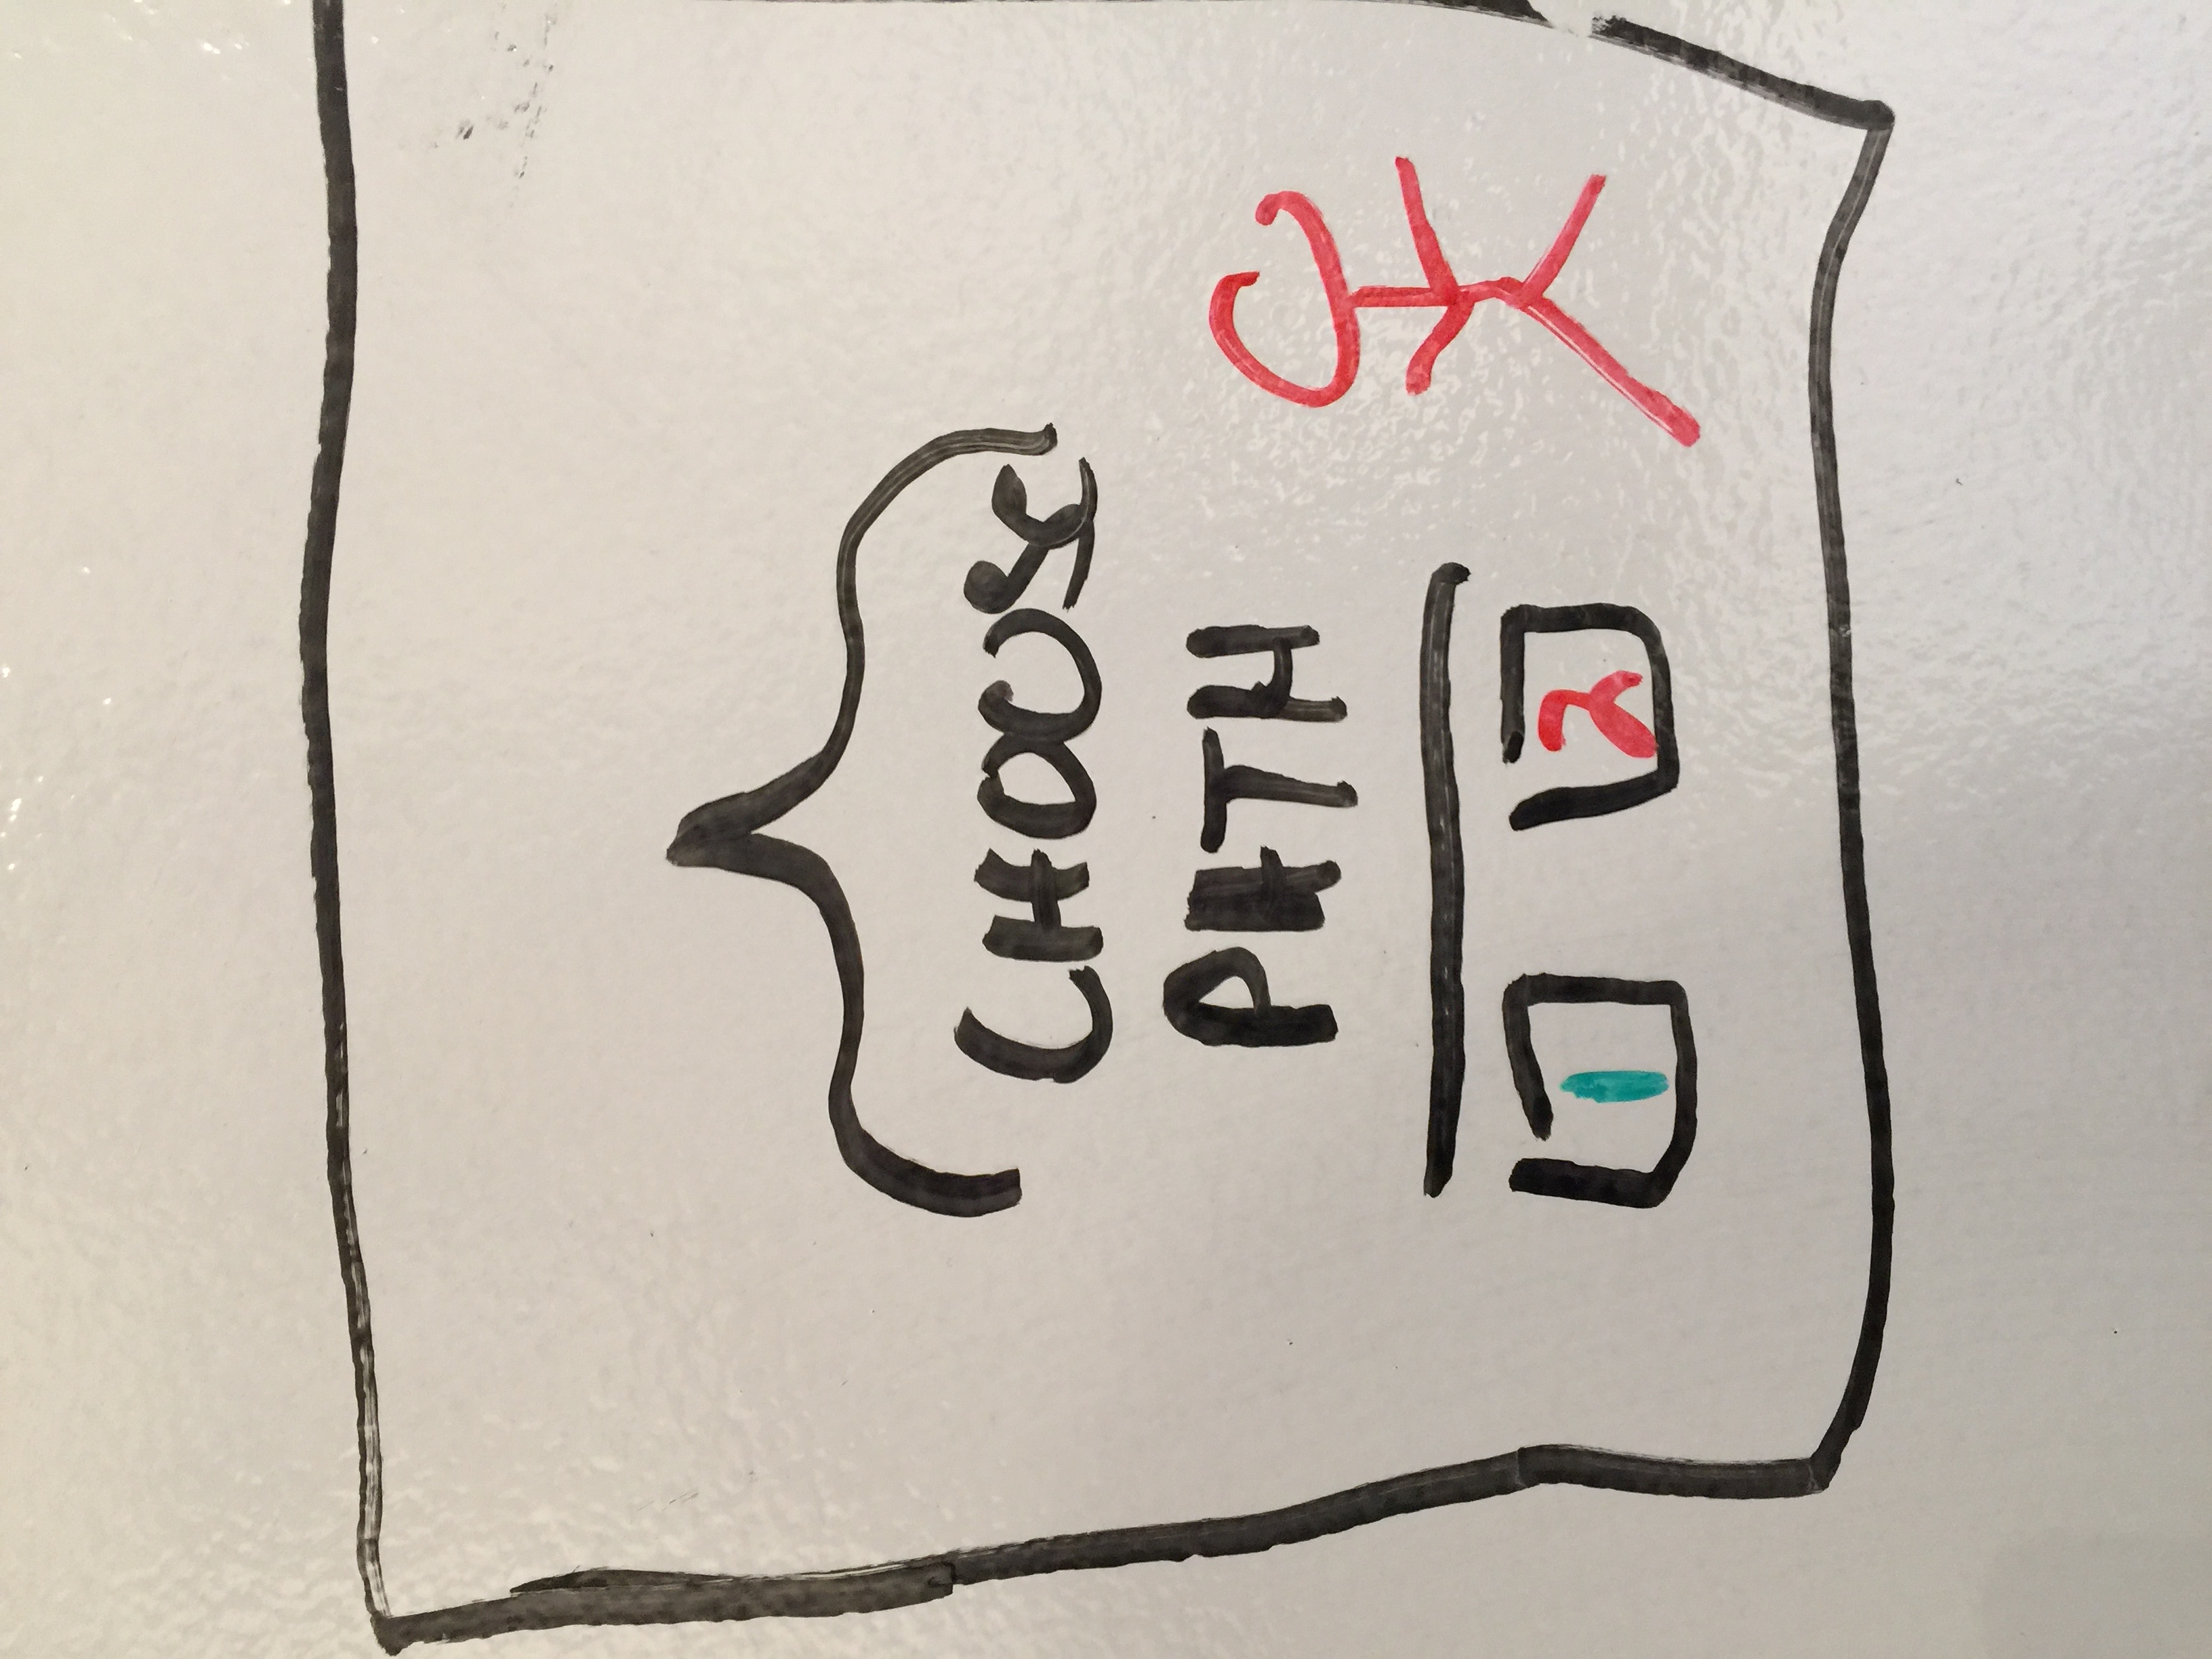 CHOOSE
PATH
1 2